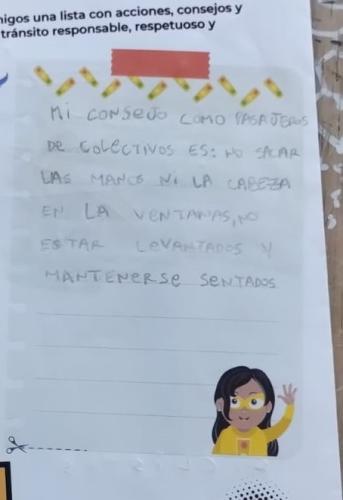 nigos una lista con acciones, consejos y
tránsito responsable, respetuoso y
Mi CONSEJO COMO PASAJEROS
DE COLECTIVOS ES: NO SACAR
LAS MANOS Ni LA CABEZA
EN LA VENTANAS, NO
ESTAR LEVANTADOS Y
MANTENERSE SENTADOS